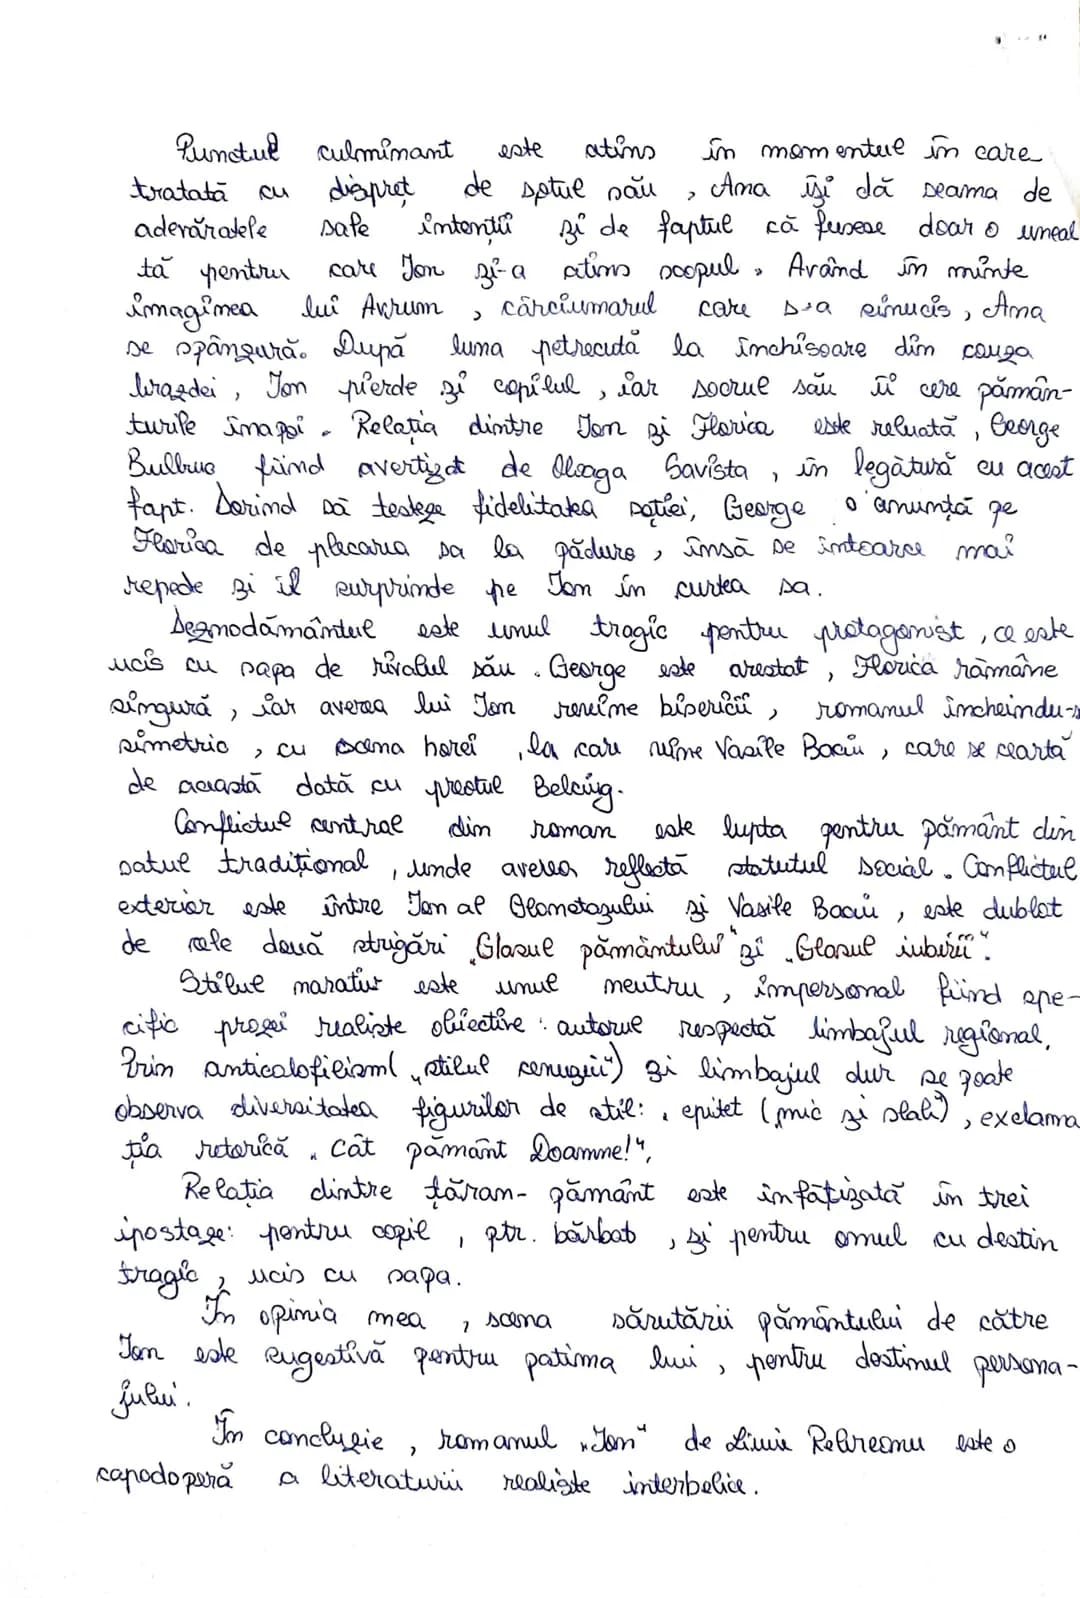 Punctul culminant este atins în momentul în care
tratată cu dispreț de soțul său, Ana își dă seama de
adevăratele sale intenții și de faptul că fusese doar o uneal
tă pentru care Ion și-a atins scopul. Având în minte
imaginea lui Avrum, cârciumarul care s-a sinucis, Ana
se spânzură. După luna petrecută la închisoare din cauza
brazdei, Ion pierde și copilul, iar socrul său îi cere pămân-
turile înapoi. Relația dintre Ion și Florica este reluată, George
Bulbuc fiind avertizat de Oloaga Savista, în legătură cu acest
fapt. Dorind să testeze fidelitatea soției, George o anunță pe
Florica de plecarea sa la pădure, însă se întoarce mai
repede și îl surprinde pe Ion în curtea sa.
Deznodământul este unul tragic pentru protagonist, ce este
ucis cu sapa de rivalul său. George este arestat, Florica rămâne
singură, iar averea lui Ion revine bisericii, romanul încheindu-s
simetric, cu scena horei, la care vine Vasile Baciu, care se ceartă
de această dată cu preotul Belciug.
Conflictul central din roman este lupta pentru pământ din
satul tradițional, unde averea reflectă statutul social. Conflictul
exterior este între Ion al Glanetașului și Vasile Baciu, este dublat
de cele două strigări „Glasul pământului" și „Glasul iubirii".
Stilul narativ este unul neutru, impersonal fiind spe-
cific prozei realiste obiective: autorul respectă limbajul regional.
Prin anticalofilism („stilul cenușiu") și limbajul dur se poate
observa diversitatea figurilor de stil: , epitet (mic și slab), exclama
ția retorică „Cât pământ Doamne!",
Relația dintre țăran- pământ este înfățizată în trei
ipostaze: pentru copil, ptr. bărbat, și pentru omul cu destin
tragic, ucis cu sapa.
În opinia mea, scena sărutării pământului de către
Ion este sugestivă pentru patima lui, pentru destinul persona-
jului.
În concluzie, romanul „Ion" de Liviu Rebreanu este o
capodoperă a literaturii realiste interbelice.